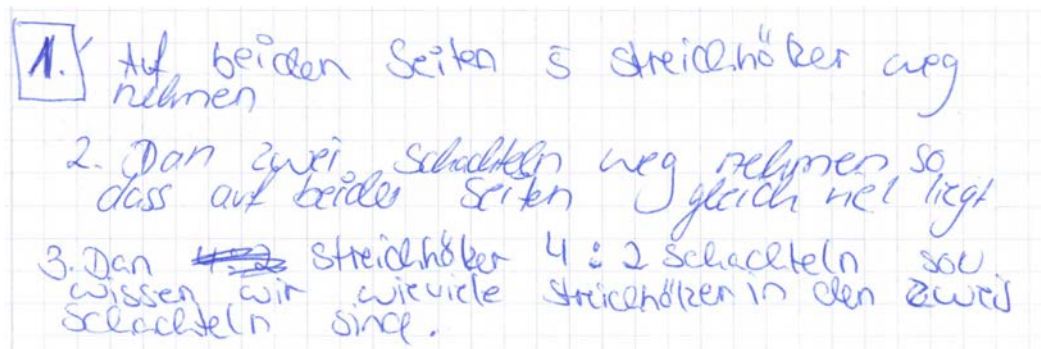 1. Auf beiden Seiten 5 streichhölzer weg
nehmen
2. Dan zwei Schachteln weg nehmen so
dass auf beiden Seiten gleich viel liegt
3. Dan streichhölzer 4 : 2 schachteln so
wissen wir wieviele streichhölzer in den zwei
schachteln sind.